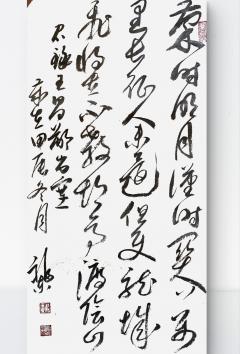 秦时明月汉时关万
里长征人未还但使龙城
飞将在不教胡马渡阴山
王昌龄出塞
庚辰冬月